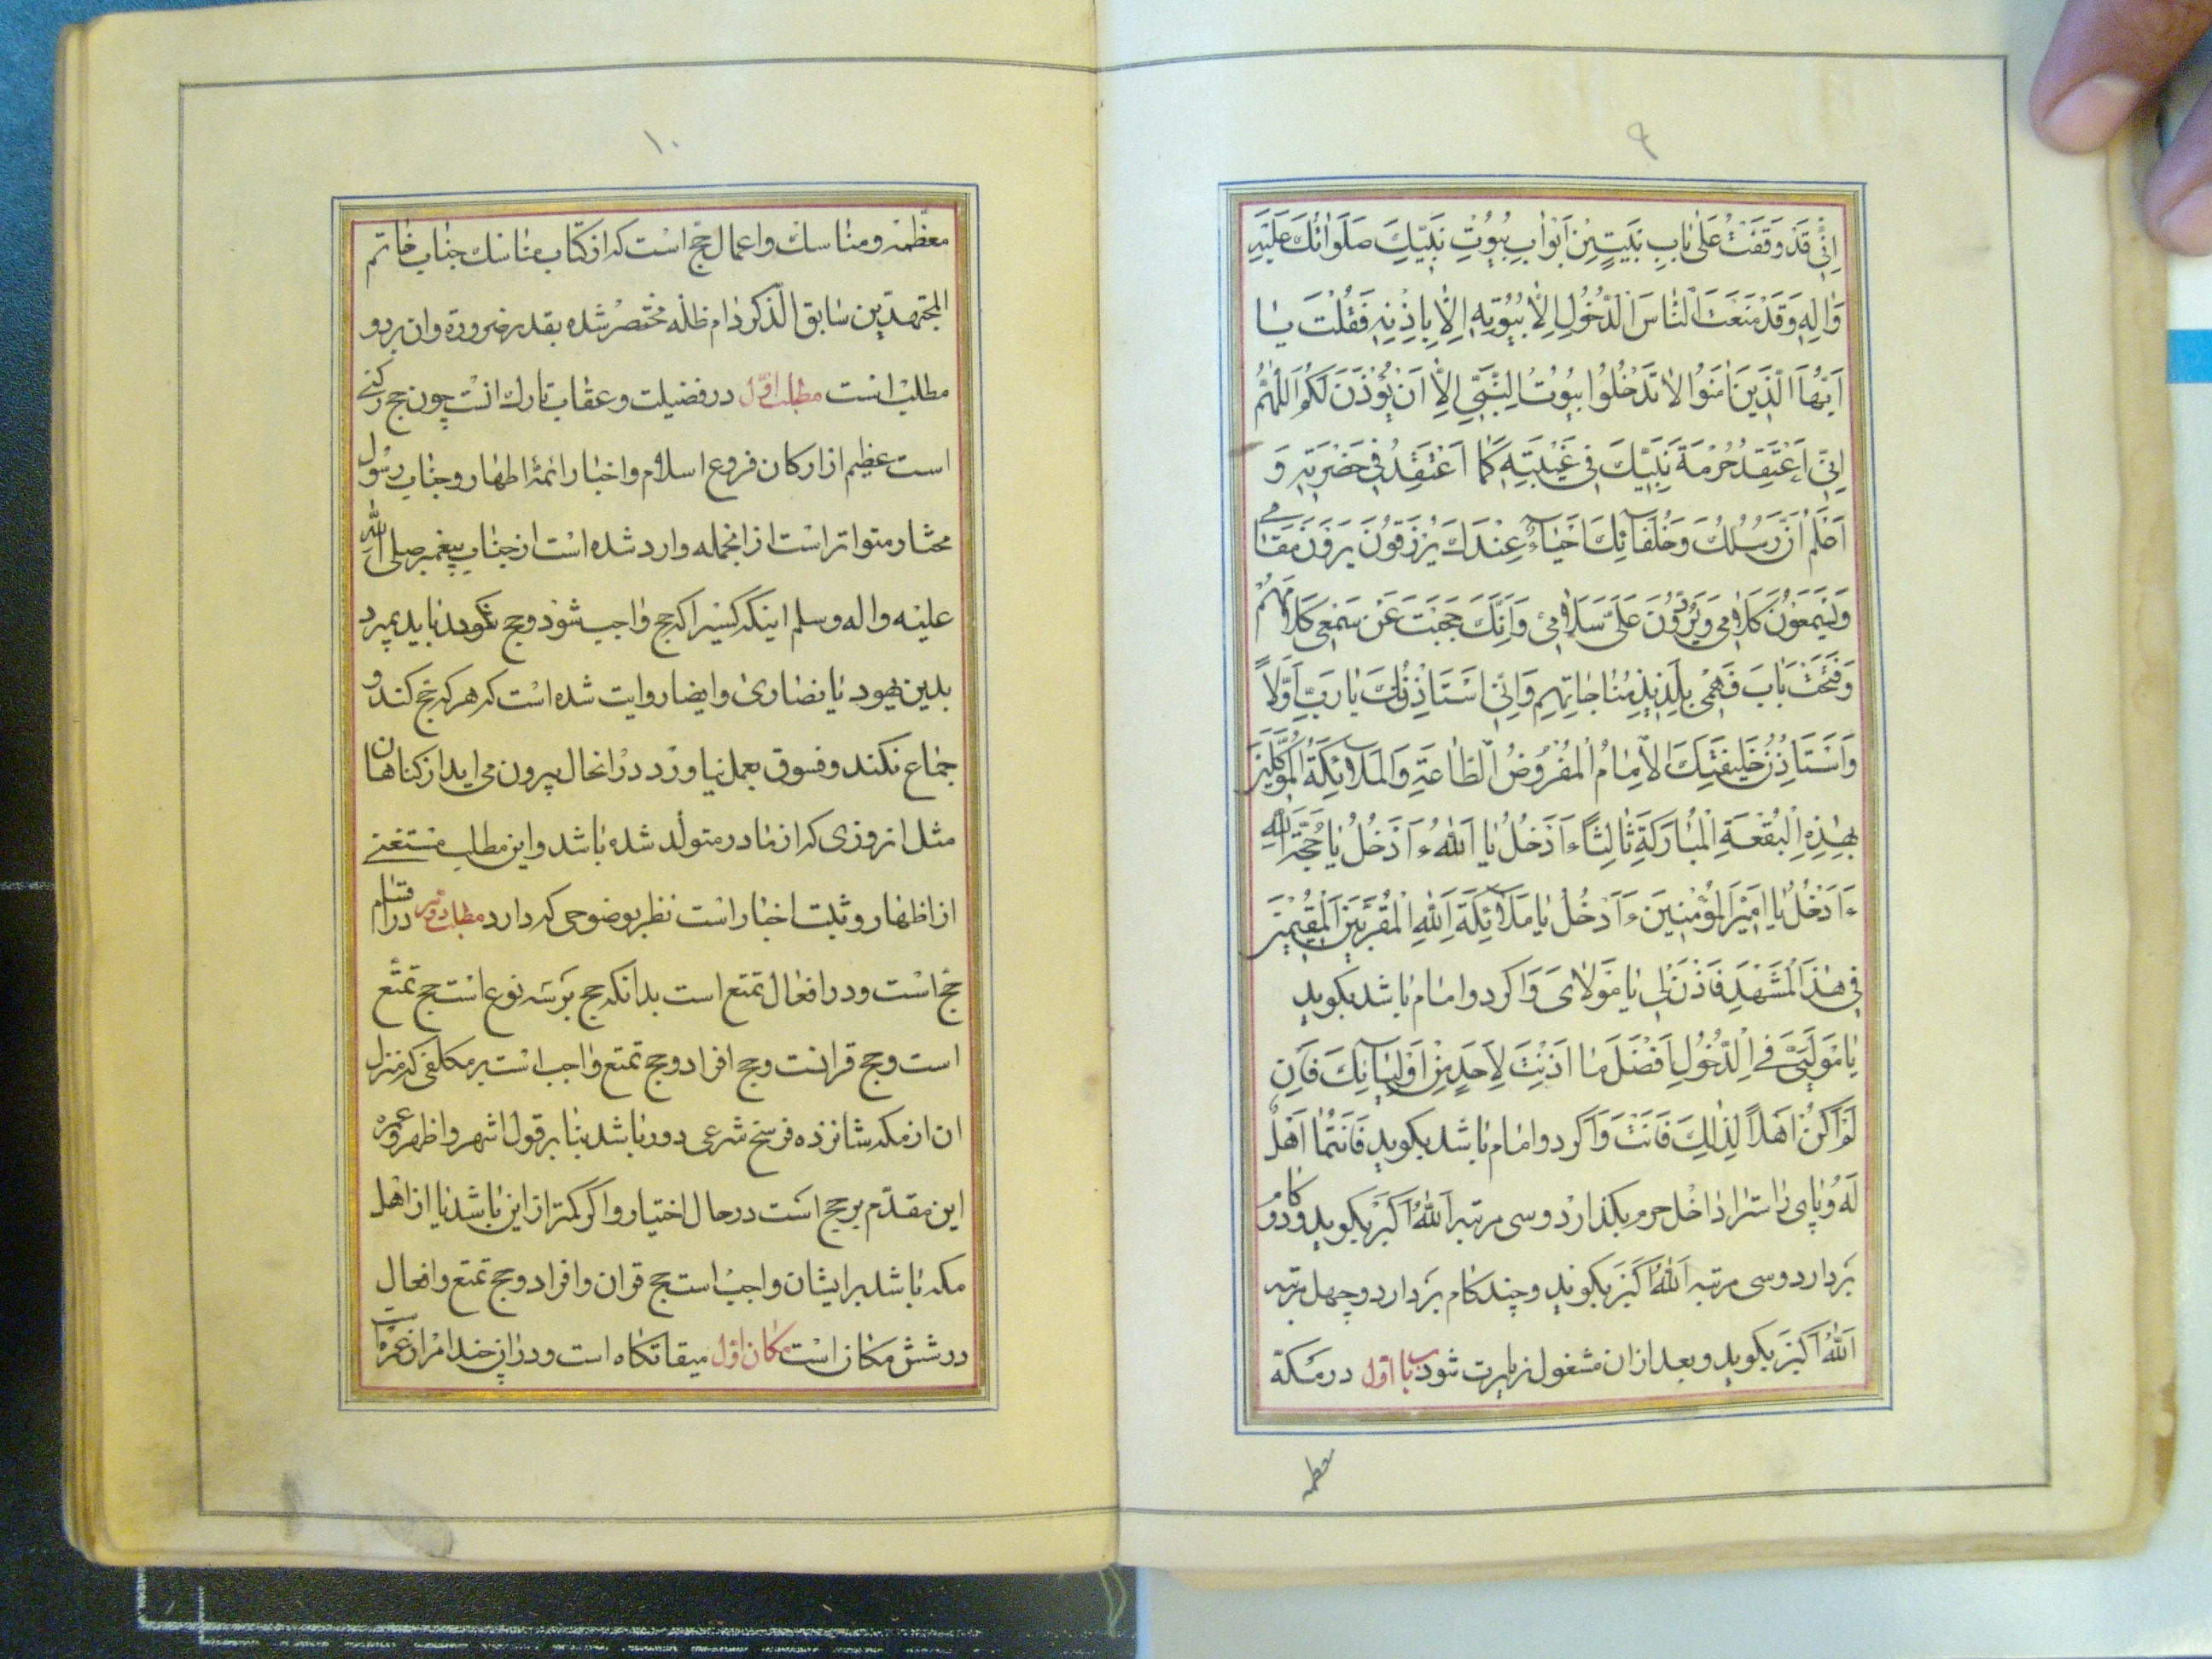 ۹
اِنّي قَدْ وَقَفْتُ عَلىٰ بٰابِ بَيْتٍ مِنْ اَبْوٰابِ بُيُوتِ نَبِيِّكَ صَلَوٰاتُكَ عَلَيْهِ
وَاٰلِهِ وَقَدْ مَنَعْتَ النّٰاسَ الدُّخُولَ اِلّٰا بُيُوتِهِ اِلّٰا بِاِذْنِهِ فَقُلْتَ يٰا
اَيُّهَا الَّذينَ اٰمَنُوا لٰا تَدْخُلُوا بُيُوتَ النَّبِيِّ اِلّٰا اَنْ يُؤْذَنَ لَكُمْ اَللّٰهُمَّ
اِنّي اَعْتَقِدُ حُرْمَةَ نَبِيِّكَ في غَيْبَتِهِ كَمٰا اَعْتَقِدُ في حَضْرَتِهِ وَ
اَعْلَمُ اَنَّ رُسُلَكَ وَخُلَفٰائَكَ اَحْيٰاءٌ عِنْدَكَ يُرْزَقُونَ يَرَوْنَ مَقٰامي
وَيَسْمَعُونَ كَلٰامي وَيَرُدُّونَ عَلَيَّ سَلٰامي وَاَنَّكَ حَجَبْتَ عَنْ سَمْعي كَلٰامَهُمْ
وَفَتَحْتَ بٰابَ فَهْمي بِلَذيذِ مُنٰاجٰاتِهِمْ وَاِنّي اَسْتَاْذِنُكَ يٰا رَبِّ اَوَّلاً
وَاَسْتَاْذِنُ خَليفَتَكَ الْاِمٰامُ الْمَفْرُوضُ الطّٰاعَةِ وَالْمَلٰائِكَةَ الْمُوَكَّلينَ
بِهٰذِهِ الْبُقْعَةِ الْمُبٰارَكَةِ ثٰالِثاً ءَاَدْخُلُ يٰا اَللّٰهُ ءَاَدْخُلُ يٰا حُجَّةَ اللّٰهِ
ءَاَدْخُلُ يٰا اَميرَ الْمُؤْمِنينَ ءَاَدْخُلُ يٰا مَلٰائِكَةَ اللّٰهِ الْمُقَرَّبينَ الْمُقيمينَ
في هٰذَا الْمَشْهَدِ فَاْذَنْ لي يٰا مَوْلٰاىَ وَاكر دو امام باشد بكويد
يٰا مَوْلَيَيَّ فِي الدُّخُولِ اَفْضَلَ مٰا اَذِنْتَ لِاَحَدٍ مِنْ اَوْلِيٰائِكَ فَاِنْ
لَمْ اَكُنْ اَهْلاً لِذٰلِكَ فَاَنْتَ وَاكر دو امام باشد بكويد فَاَنْتُمٰا اَهْلٌ
لَهُ وپاى راسترا داخل حرم بكذارد وسى مرتبه اَللّٰهُ اَكْبَرُ بكويد ودو كام
بردارد وسى مرتبه اَللّٰهُ اَكْبَرُ بكويد وچند كام بردارد وچهل مرتبه
اَللّٰهُ اَكْبَرُ بكويد وبعد ازان مشغول زيارت شود باب اوّل در مكّة
۱۰
معظّمه ومناسك واعمال حج است كه از كتاب مناسك جناب خاتم
المجتهدين سابق الذّكر دام ظلّه مختصر شده بقدر ضرورة وان بر دو
مطلب است مطلب اوّل در فضيلت وعقاب تارك انست چون حج ركنے
است عظيم از اركان فروع اسلام واخبار ائمّهٔ اطهار وجناب رسول
مختار متواتر است از انجمله وارد شده است از جناب پيغمبر صلى اللّه
عليه واله وسلم اينكه كسيرا كه حج واجب شود وحج نكند بايد بميرد
بدين يهود يا نصارى وايضا روايت شده است كه هر كه حج كند و
جماع نكند وفسوق بعمل نياورد در انحال بيرون مى ايد از كناهان
مثل ان روزى كه از مادر متولّد شده باشد واين مطلب مستغنى
از اظهار وثبت اخبار است نظر بوضوحى كه دارد مطلب دوّم در اقسام
حج است ودر افعال تمتع است بدانكه حج بر سه نوع است حج تمتّع
است وحج قرانست وحج افراد وحج تمتع واجب است بر مكلفى كه منزل
ان از مكه شانزده فرسخ شرعى دور باشد بنا بر قول اشهر واظهر وعمره
اين مقدّم بر حج است در حال اختيار واكر كمتر از اين باشد يا از اهل
مكه باشد بر ايشان واجب است حج قران وافراد وحج تمتع وافعال
در شش مكان است مكان اوّل ميقاتكاه است ودران چند امر